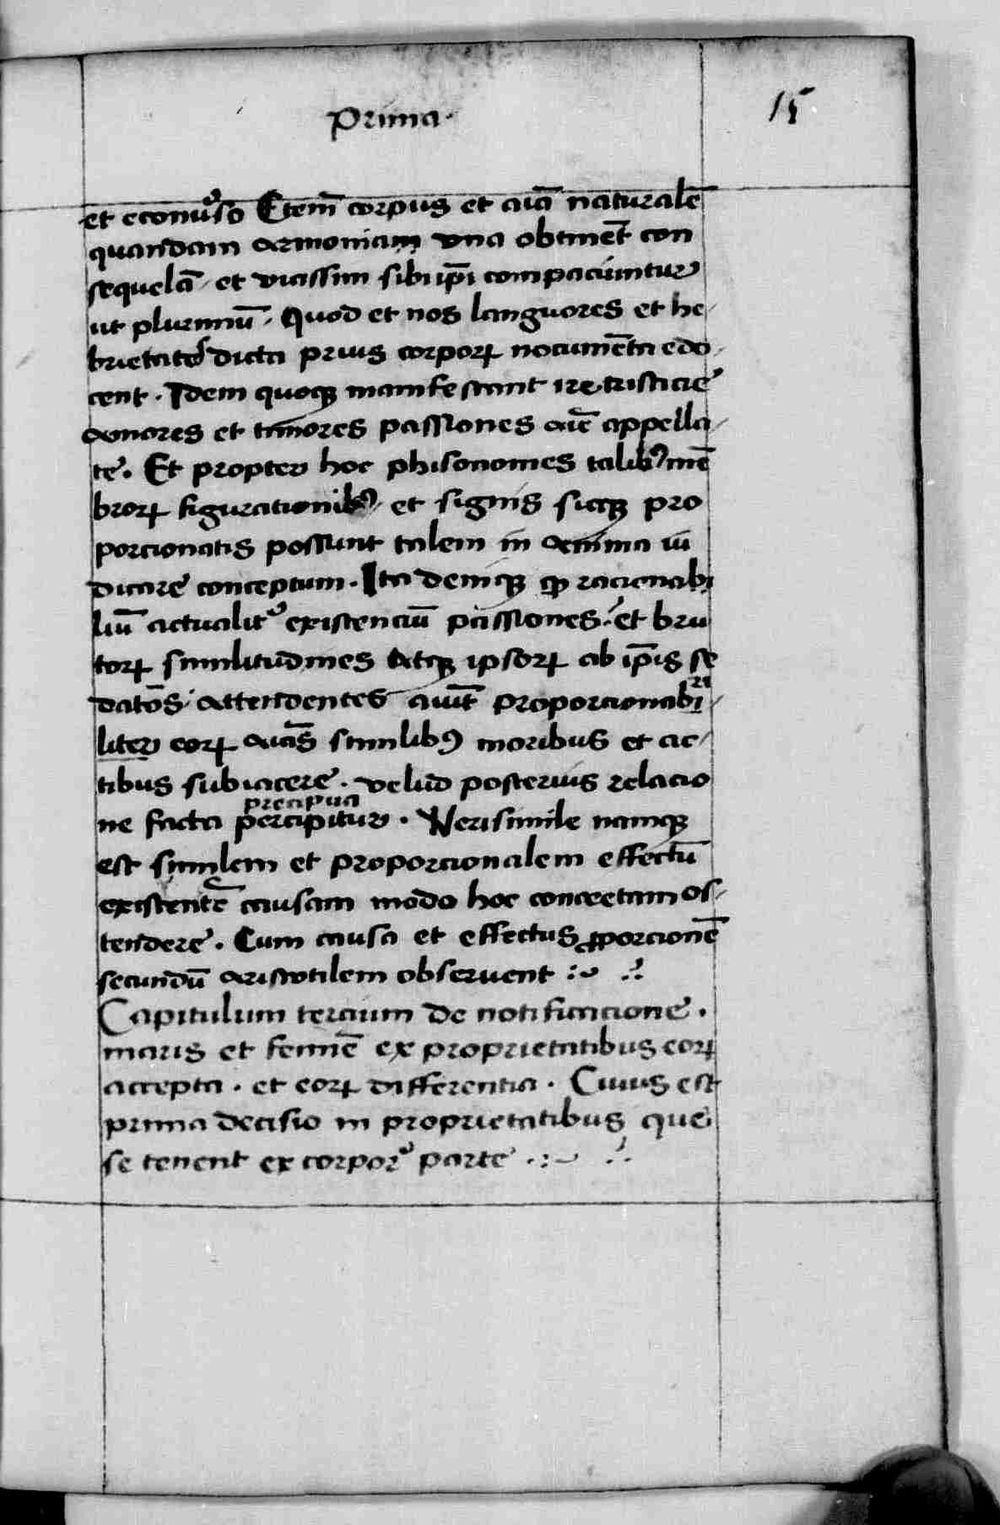 Prima·
15
et econuˀso Etem̄ corpus et aīa naturalē
quandam armoniam vna obtinēt con
sequelā· et vicissim sibi ip̄i compaciuntur
ut plurimū· Quod et nos languores et he-
brietates dicta prius corporꝝ nocumēta edo-
cent· Idem quoqꝫ manifestant ire tristicie
amores et timores passiones aīe appella-
te· Et propter hoc phisonomes talibꝰ mē
brorꝝ figurationibꝰ et signis sicqꝫ pro
porcionatis possunt talem in anima iu
dicare conceptum· Ita deniqꝫ ꝙ racionabi
liū actualitˀ existenciū passiones· et bru
torꝝ similitudines atqꝫ ipsorꝝ ab ip̄is se
datōs attendentes aiūt proporcionabi-
liter eorꝝ aīas similibꝰ moribus et ac-
tibus subiacere· velud posterius relacio
precipua
ne facta percipitur· Verisimile namqꝫ
est similem et proporcionalem effectū
existentē causam modo hoc concretam os-
tendere· Cum causa et effectus ꝓporcionē
secundū aristotilem obseruent
Capitulum tercium de notificacione·
maris et femīe ex proprietatibus eorꝝ
accepta· et eorꝝ differentia· Cuius est
prima decisio in proprietatibus que
se tenent ex corporˀ parte